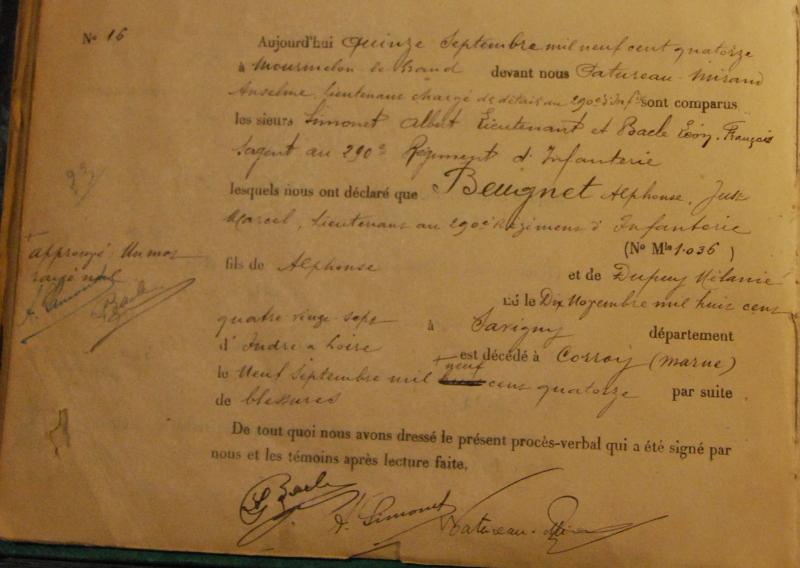 No 16
Aujourd'hui quinze Septembre mil neuf cent quatorze
à Mourmelon-le-Grand devant nous Patureau-Mirand
Anselme, lieutenant chargé des détails du 290e d'Infie sont comparus
les sieurs Simonet Albert Lieutenant et Bacle Léon, François
Sergent au 290e Régiment d'Infanterie
lesquels nous ont déclaré que Beugnet Alphonse, Just
Marcel, Lieutenant au 290e Régiment d'Infanterie
(No Mle 1.036)
fils de Alphonse et de Dupuy Mélanie
né le Dix Novembre mil huit cent
quatre vingt sept à Savigny département
d'Indre et Loire est décédé à Corroy (Marne)
le Neuf Septembre mil + neuf cent quatorze par suite
de blessures
De tout quoi nous avons dressé le présent procès-verbal qui a été signé par
nous et les témoins après lecture faite.
+ approuvé un mot
rayé nul
A. Simonet
Bacle
L Bacle
A. Simonet
Patureau-Mirand